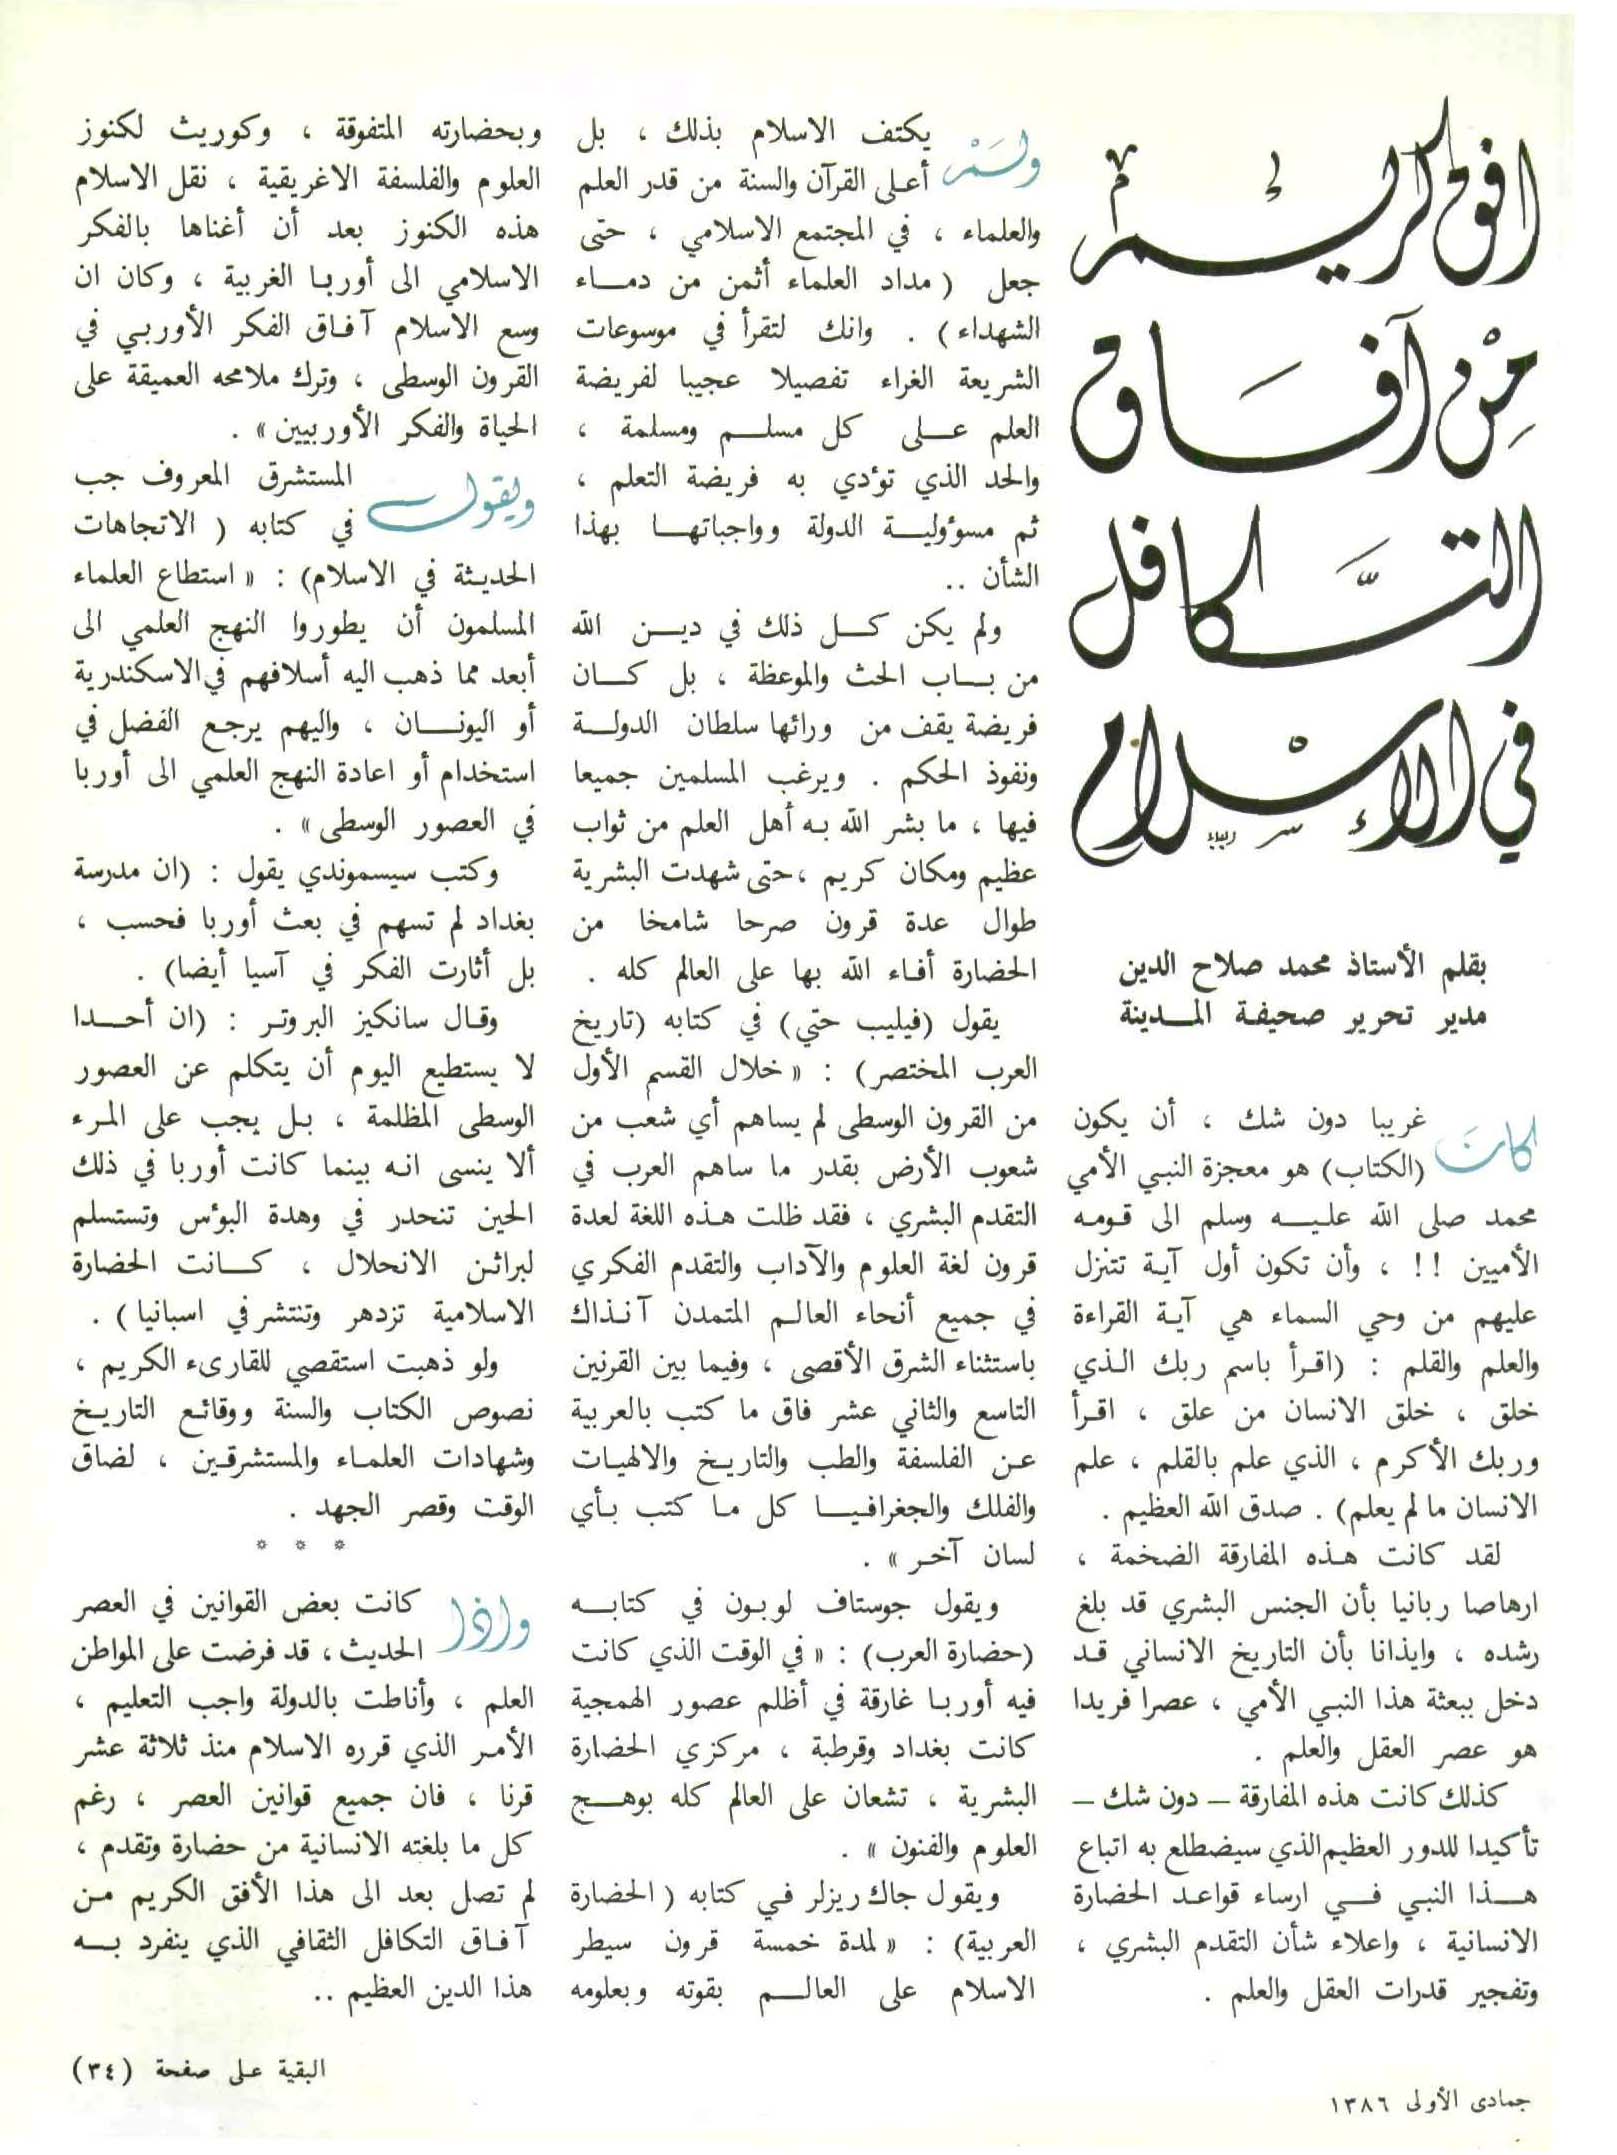 افق كريم
من آفاق
التكافل
في الإسلام
بقلم الأستاذ محمد صلاح الدين
مدير تحرير صحيفة المدينة
كان غريبا دون شك ، أن يكون
(الكتاب) هو معجزة النبي الأمي
محمد صلى الله عليه وسلم الى قومه
الأميين !! ، وأن تكون أول آية تتنزل
عليهم من وحي السماء هي آية القراءة
والعلم والقلم : (اقرأ باسم ربك الذي
خلق ، خلق الانسان من علق ، اقرأ
وربك الأكرم ، الذي علم بالقلم ، علم
الانسان ما لم يعلم) . صدق الله العظيم .
لقد كانت هذه المفارقة الضخمة ،
ارهاصا ربانيا بأن الجنس البشري قد بلغ
رشده ، وايذانا بأن التاريخ الانساني قد
دخل ببعثة هذا النبي الأمي ، عصرا فريدا
هو عصر العقل والعلم .
كذلك كانت هذه المفارقة – دون شك –
تأكيدا للدور العظيم الذي سيضطلع به اتباع
هذا النبي في ارساء قواعد الحضارة
الانسانية ، واعلاء شأن التقدم البشري ،
وتفجير قدرات العقل والعلم .
ولم يكتف الاسلام بذلك ، بل
أعلى القرآن والسنة من قدر العلم
والعلماء ، في المجتمع الاسلامي ، حتى
جعل (مداد العلماء أثمن من دماء
الشهداء) . وانك لتقرأ في موسوعات
الشريعة الغراء تفصيلا عجيبا لفريضة
العلم على كل مسلم ومسلمة ،
والحد الذي تؤدي به فريضة التعلم ،
ثم مسؤولية الدولة وواجباتها بهذا
الشأن ..
ولم يكن كل ذلك في دين الله
من باب الحث والموعظة ، بل كان
فريضة يقف من ورائها سلطان الدولة
ونفوذ الحكم . ويرغب المسلمين جميعا
فيها ، ما بشر الله به أهل العلم من ثواب
عظيم ومكان كريم ، حتى شهدت البشرية
طوال عدة قرون صرحا شامخا من
الحضارة أفاء الله بها على العالم كله .
يقول (فيليب حتي) في كتابه (تاريخ
العرب المختصر) : « خلال القسم الأول
من القرون الوسطى لم يساهم أي شعب من
شعوب الأرض بقدر ما ساهم العرب في
التقدم البشري ، فقد ظلت هذه اللغة لعدة
قرون لغة العلوم والآداب والتقدم الفكري
في جميع أنحاء العالم المتمدن آنذاك
باستثناء الشرق الأقصى ، وفيما بين القرنين
التاسع والثاني عشر فاق ما كتب بالعربية
عن الفلسفة والطب والتاريخ والالهيات
والفلك والجغرافيا كل ما كتب بأي
لسان آخر » .
ويقول جوستاف لوبون في كتابه
(حضارة العرب) : « في الوقت الذي كانت
فيه أوربا غارقة في أظلم عصور الهمجية
كانت بغداد وقرطبة ، مركزي الحضارة
البشرية ، تشعان على العالم كله بوهج
العلوم والفنون » .
ويقول جاك ريزلر في كتابه (الحضارة
العربية) : « لمدة خمسة قرون سيطر
الاسلام على العالم بقوته وبعلومه
وبحضارته المتفوقة ، وكوريث لكنوز
العلوم والفلسفة الاغريقية ، نقل الاسلام
هذه الكنوز بعد أن أغناها بالفكر
الاسلامي الى أوربا الغربية ، وكان ان
وسع الاسلام آفاق الفكر الأوربي في
القرون الوسطى ، وترك ملامحه العميقة على
الحياة والفكر الأوربيين » .
ويقول المستشرق المعروف جب
في كتابه ( الاتجاهات
الحديثة في الاسلام) : « استطاع العلماء
المسلمون أن يطوروا النهج العلمي الى
أبعد مما ذهب اليه أسلافهم في الاسكندرية
أو اليونان ، واليهم يرجع الفضل في
استخدام أو اعادة النهج العلمي الى أوربا
في العصور الوسطى » .
وكتب سيسموندي يقول : (ان مدرسة
بغداد لم تسهم في بعث أوربا فحسب ،
بل أثارت الفكر في آسيا أيضا) .
وقال سانكيز البروتر : (ان أحدا
لا يستطيع اليوم أن يتكلم عن العصور
الوسطى المظلمة ، بل يجب على المرء
ألا ينسى انه بينما كانت أوربا في ذلك
الحين تنحدر في وهدة البؤس وتستسلم
لبراثن الانحلال ، كانت الحضارة
الاسلامية تزدهر وتنتشر في اسبانيا) .
ولو ذهبت استقصي للقارىء الكريم ،
نصوص الكتاب والسنة ووقائع التاريخ
وشهادات العلماء والمستشرقين ، لضاق
الوقت وقصر الجهد .
* * *
واذا كانت بعض القوانين في العصر
الحديث ، قد فرضت على المواطن
العلم ، وأناطت بالدولة واجب التعليم ،
الأمر الذي قرره الاسلام منذ ثلاثة عشر
قرنا ، فان جميع قوانين العصر ، رغم
كل ما بلغته الانسانية من حضارة وتقدم ،
لم تصل بعد الى هذا الأفق الكريم من
آفاق التكافل الثقافي الذي ينفرد به
هذا الدين العظيم ..
البقية على صفحة (٣٤)
جمادى الأولى ١٣٨٦